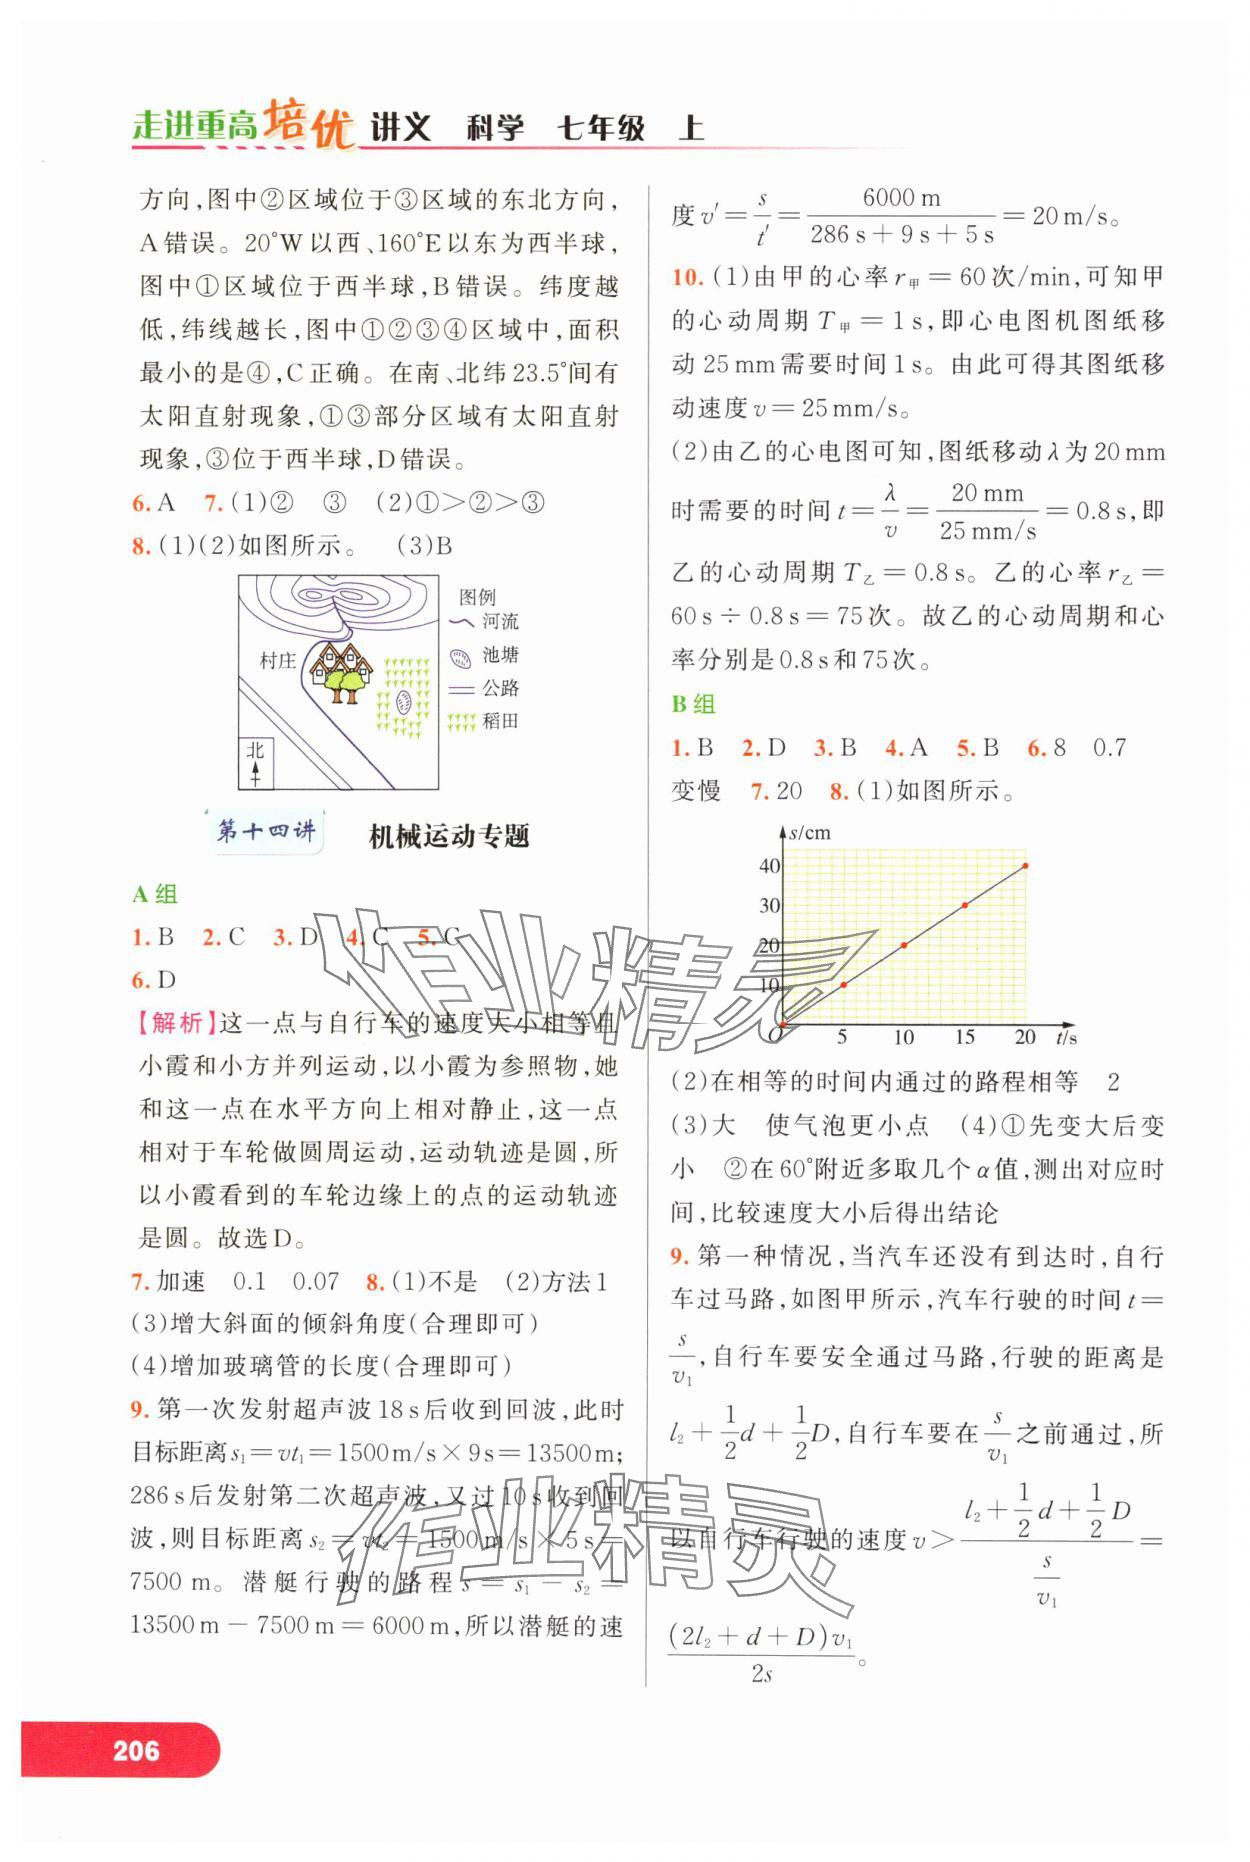 走进重高培优 讲义 科学 七年级 上
方向,图中②区域位于③区域的东北方向,
A错误。20°W以西、160°E以东为西半球,
图中①区域位于西半球,B错误。纬度越
低,纬线越长,图中①②③④区域中,面积
最小的是④,C正确。在南、北纬23.5°间有
太阳直射现象,①③部分区域有太阳直射
现象,③位于西半球,D错误。
6. A 7. (1)② ③ (2)①>②>③
8. (1)(2)如图所示。 (3)B
图例
河流
村庄
池塘
公路
稻田
北
第十四讲 机械运动专题
A 组
1. B 2. C 3. D 4. C 5. C
6. D
【解析】这一点与自行车的速度大小相等且
小霞和小方并列运动,以小霞为参照物,她
和这一点在水平方向上相对静止,这一点
相对于车轮做圆周运动,运动轨迹是圆,所
以小霞看到的车轮边缘上的点的运动轨迹
是圆。故选D。
7. 加速 0.1 0.07 8. (1)不是 (2)方法1
(3)增大斜面的倾斜角度(合理即可)
(4)增加玻璃管的长度(合理即可)
9. 第一次发射超声波18 s后收到回波,此时
目标距离s₁=vt₁=1500 m/s×9 s=13500 m;
286 s后发射第二次超声波,又过10 s收到回
波,则目标距离s₂=vt₂=1500 m/s×5 s=
7500 m。潜艇行驶的路程s=s₁-s₂=
13500 m-7500 m=6000 m,所以潜艇的速
度v′=s/t′=6000 m/(286 s+9 s+5 s)=20 m/s。
10. (1)由甲的心率r甲=60次/min,可知甲
的心动周期T甲=1 s,即心电图机图纸移
动25 mm需要时间1 s。由此可得其图纸移
动速度v=25 mm/s。
(2)由乙的心电图可知,图纸移动λ为20 mm
时需要的时间t=λ/v=20 mm/(25 mm/s)=0.8 s,即
乙的心动周期T乙=0.8 s。乙的心率r乙=
60 s÷0.8 s=75次。故乙的心动周期和心
率分别是0.8 s和75次。
B 组
1. B 2. D 3. B 4. A 5. B 6. 8 0.7
变慢 7. 20 8. (1)如图所示。
s/cm
40
30
20
10
O 5 10 15 20 t/s
(2)在相等的时间内通过的路程相等 2
(3)大 使气泡更小点 (4)①先变大后变
小 ②在60°附近多取几个α值,测出对应时
间,比较速度大小后得出结论
9. 第一种情况,当汽车还没有到达时,自行
车过马路,如图甲所示,汽车行驶的时间t=
s/v₁,自行车要安全通过马路,行驶的距离是
l₂+1/2 d+1/2 D,自行车要在s/v₁之前通过,所
以自行车行驶的速度v>(l₂+1/2 d+1/2 D)/(s/v₁)=
(2l₂+d+D)v₁/2s。
作业精灵
作业精灵
206